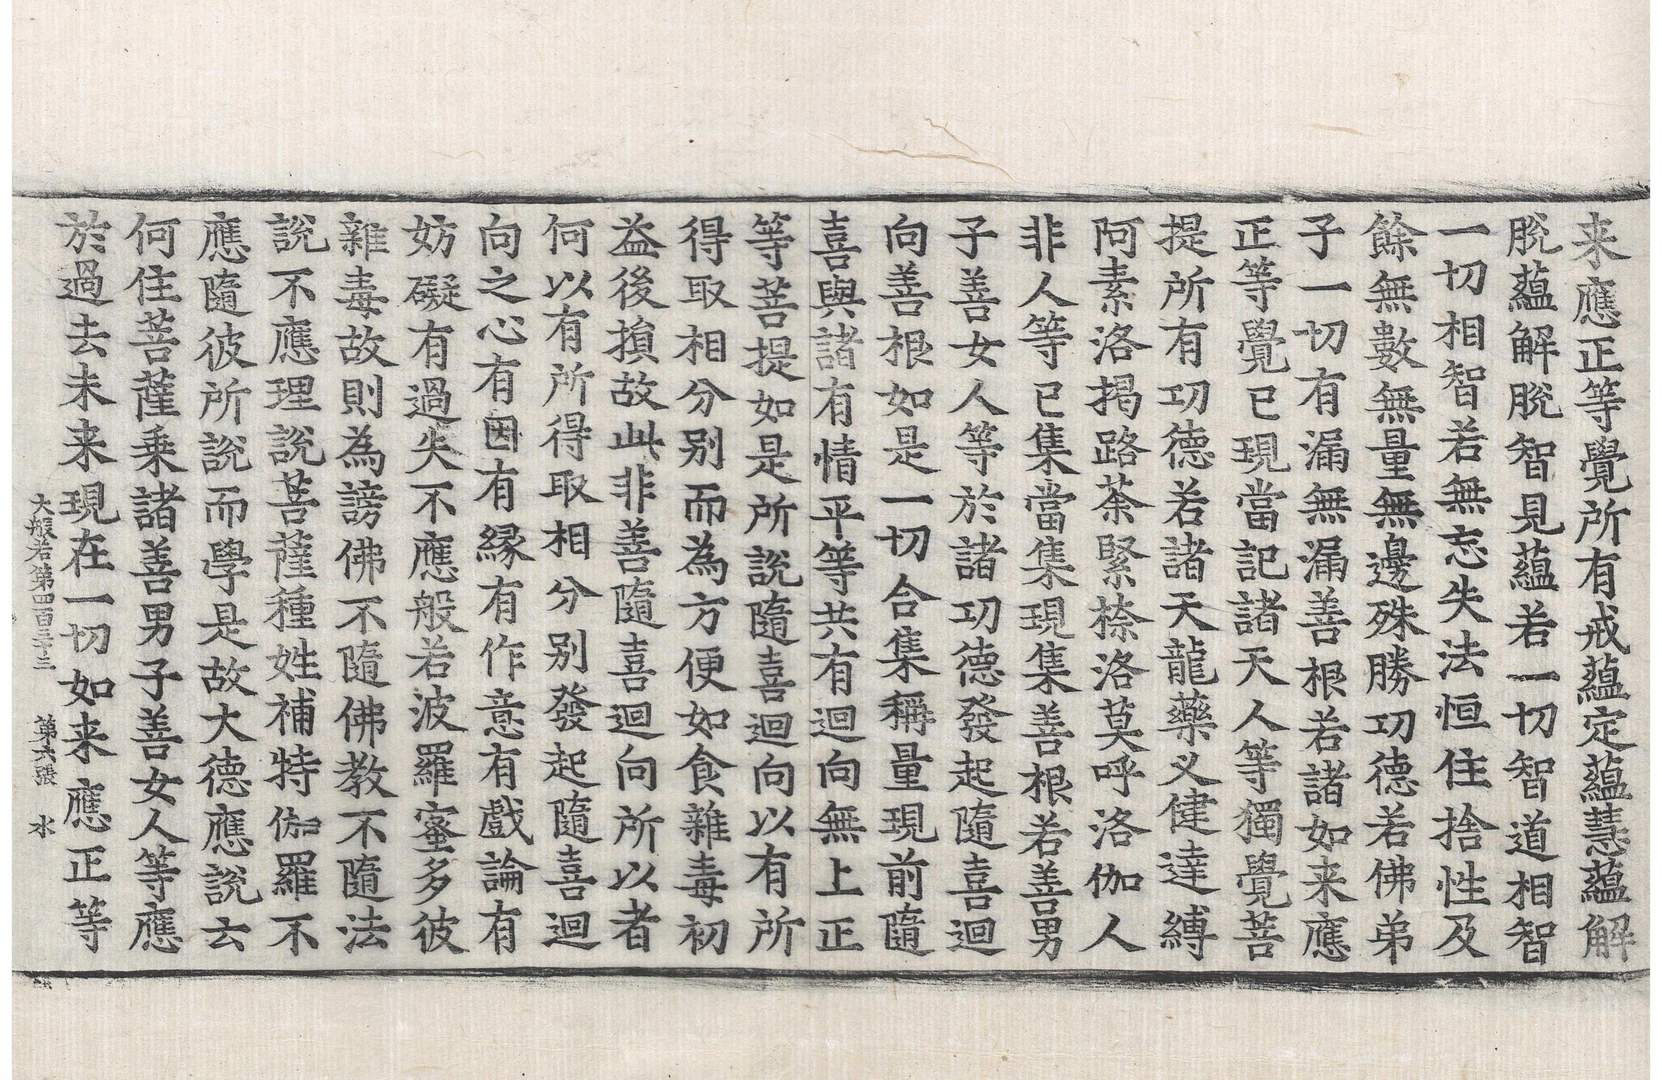 来應正等覺所有戒蘊定蘊慧蘊解
脫蘊解脫智見蘊若一切智道相智
一切相智若無忘失法恒住捨性及
餘無數無量無邊殊勝功德若佛弟
子一切有漏無漏善根若諸如来應
正等覺已現當記諸天人等獨覺菩
提所有功德若諸天龍藥叉健達縛
阿素洛揭路荼緊捺洛莫呼洛伽人
非人等已集當集現集善根若善男
子善女人等於諸功德發起隨喜迴
向善根如是一切合集稱量現前隨
喜與諸有情平等共有迴向無上正
等菩提如是所說隨喜迴向以有所
得取相分別而為方便如食雜毒初
益後損故此非善隨喜迴向所以者
何以有所得取相分別發起隨喜迴
向之心有因有緣有作意有戲論有
妨礙有過失不應般若波羅蜜多彼
雜毒故則為謗佛不隨佛教不隨法
說不應理說菩薩種姓補特伽羅不
應隨彼所說而學是故大德應說云
何住菩薩乗諸善男子善女人等應
於過去未来現在一切如来應正等
大般若第四百三十三 第六張 水